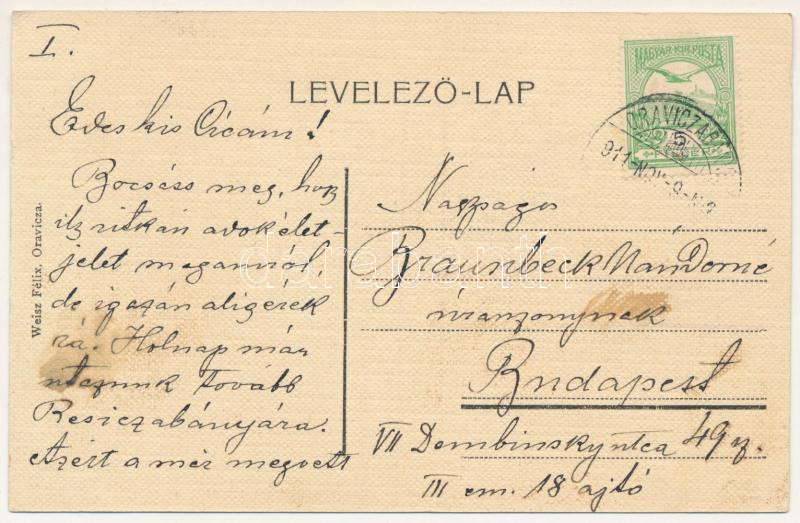 I.
LEVELEZÖ-LAP
MAGYAR KIR. POSTA
ORAVICZAB
911 NOV
Édes kis Cicám!
Bocsáss meg, hogy
ily ritkán adok élet-
jelet magamról,
de igazán alig érek
rá. Holnap már
utazunk tovább
Resiczabányára.
Azért a már megvett
Weisz Félix, Oravicza.
Nagyságos
Braunbeck Nándorné
úrasszonynak
Budapest
VII Dembinsky utca 49 sz.
III em. 18 ajtó
darabanth